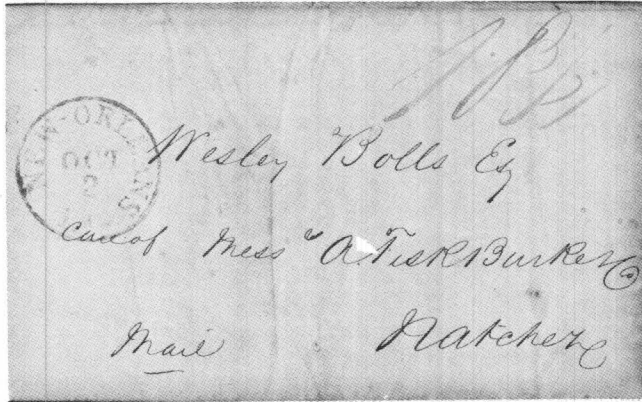 NEW-ORLEANS
OCT
2
Wesley Bolls Esq
care of Messrs A. Fisk Burke & Co
Mail
Natchez